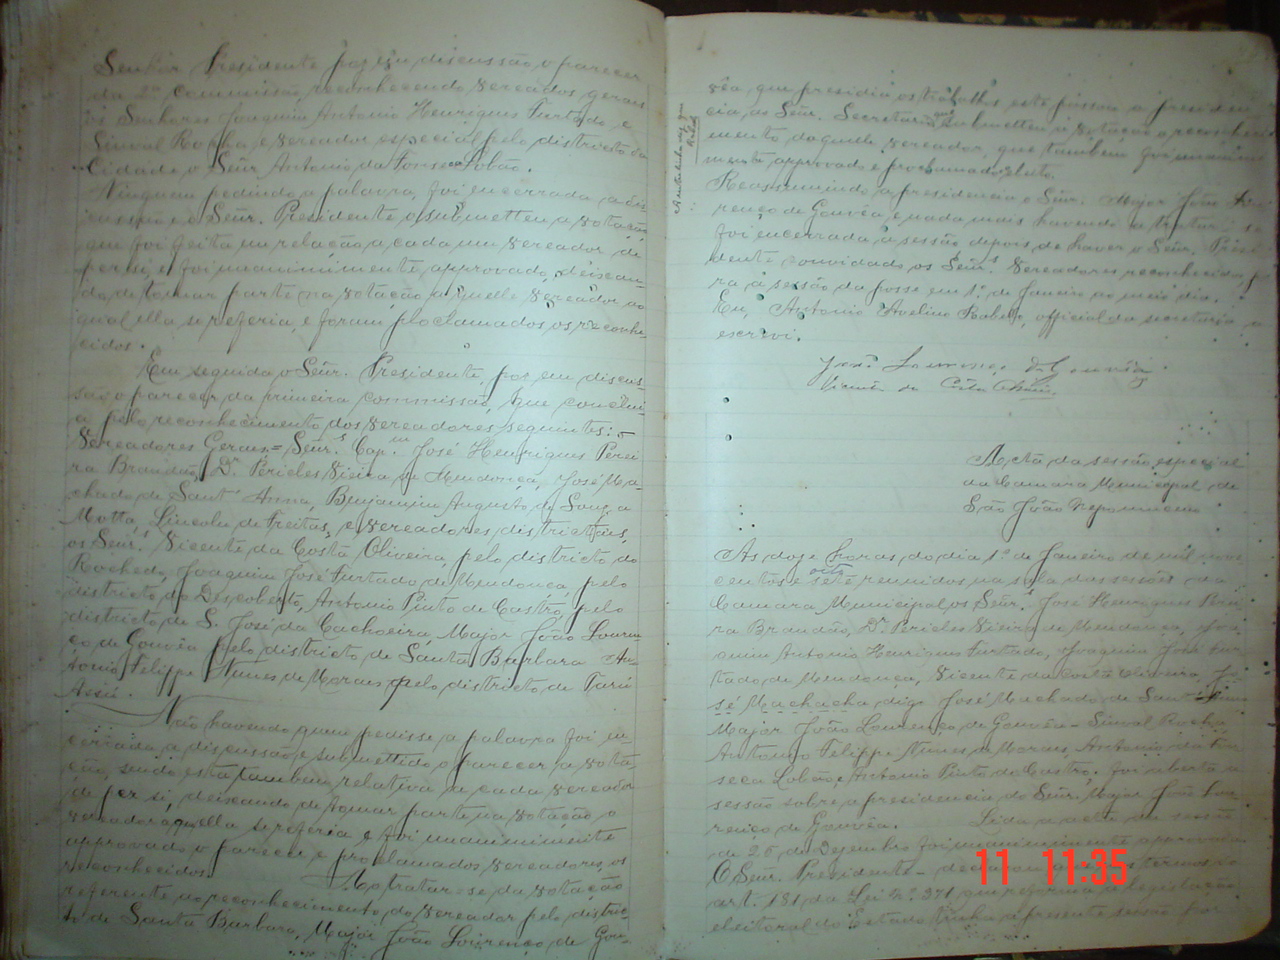 Senhor Presidente poz em discussão o parecer
da 2ª commissão, reconhecendo vereadores geraes
os Senhores Joaquim Antonio Henriques Furtado e
Sinval Rocha, e vereador especial pelo districto da
Cidade o Señr Antonio da Fonseca Lobão.
Ninguem pedindo a palavra, foi encerrada a dis-
cussão e o Señr. Presidente o submetteu a votação
que foi feita em relação a cada um vereador de
per si, e foi unanimimente approvado, deixan-
do de tomar parte na votação aquelle vereador ao
qual ella se referia, e foram proclamados os reconhe-
cidos.
Em seguida o Señr. Presidente, poz em discus-
são o parecer da primeira commissão, que conclui-
a pelo reconhecimento dos vereadores seguintes:
Vereadores Geraes = Señrs. Capm. José Henriques Perei-
ra Brandão, Dr. Pericles Vieira de Mendonça, José Ma-
chado de Sant'Anna, Benjamim Augusto de Souza
Motta, Lincoln de Freitas, e vereadores districtaes,
os Señrs. Vicente da Costa Oliveira, pelo districto do
Rochedo, Joaquim José Furtado de Mendonça, pelo
districto do Descoberto, Antonio Pinto de Castro, pelo
districto de S. José da Cachoeira, Major João Louren-
ço de Gouvêa pelo districto de Santa Barbara An-
tonio Felippe Nunes de Moraes pelo districto de Tarú
Assú.
Não havendo quem pedisse a palavra foi en-
cerrada a discussão, e submettido o parecer a vota-
ção, sendo esta tambem relativa a cada vereador
de per si, deixando de tomar parte na votação o
vereador a quem ella se referia e foi unanimimente
approvado o parecer e proclamados vereadores, os
reconhecidos. Ao tratar-se da votação
referente ao reconhecimento do vereador pelo distric-
to de Santa Barbara, Major João Lourenço de Gou-
vêa, que presidia os trabalhos este passou a presiden-
cia ao Señr. Secretario que submetteu a votação o reconheci-
mento daquelle vereador, que tambem foi unanimi-
mente approvado e proclamado eleito.
Reassumindo a presidencia o Señr. Major João Lou-
renço de Gouvêa, e nada mais havendo a tratar-se
foi encerrada a sessão depois de haver o Señr. Presi-
dente convidado os Señrs. Vereadores reconhecidos pa-
ra a sessão da posse em 1º de Janeiro ao meio dia.
Eu, Antonio Avelino Rabello, official da secretaria o
escrevi.
João Lourenço de Gouvêa
Vicente da Costa Oliveira
Acta da sessão especial
da Camara Municipal de
São João Nepomuceno
As doze horas do dia 1º de Janeiro de mil nove
centos e sete reunidos na sala das sessões da
oito
Camara Municipal os Señrs. José Henriques Perei-
ra Brandão, Dr. Pericles Vieira de Mendonça, Joa-
quim Antonio Henriques Furtado, Joaquim José Fur-
tado de Mendonça, Vicente da Costa Oliveira, Jo-
sé Machacha digo José Machado de Sant'Anna
Major João Lourenço de Gouvêa - Sinval Rocha
Antonio Felippe Nunes de Moraes, Antonio da Fon-
seca Lobão, e Antonio Pinto de Castro, foi aberta a
sessão sobre a presidencia do Señr. Major João Lou-
renço de Gouvêa. Lida a acta da sessão
de 26 de Dezembro foi unanimimente approvada.
O Señr. Presidente - declarou termos do
art. 181 da Lei nº 371 que reforma a legislação
eleitoral do Estado tinha a presente sessão por
11 11:35